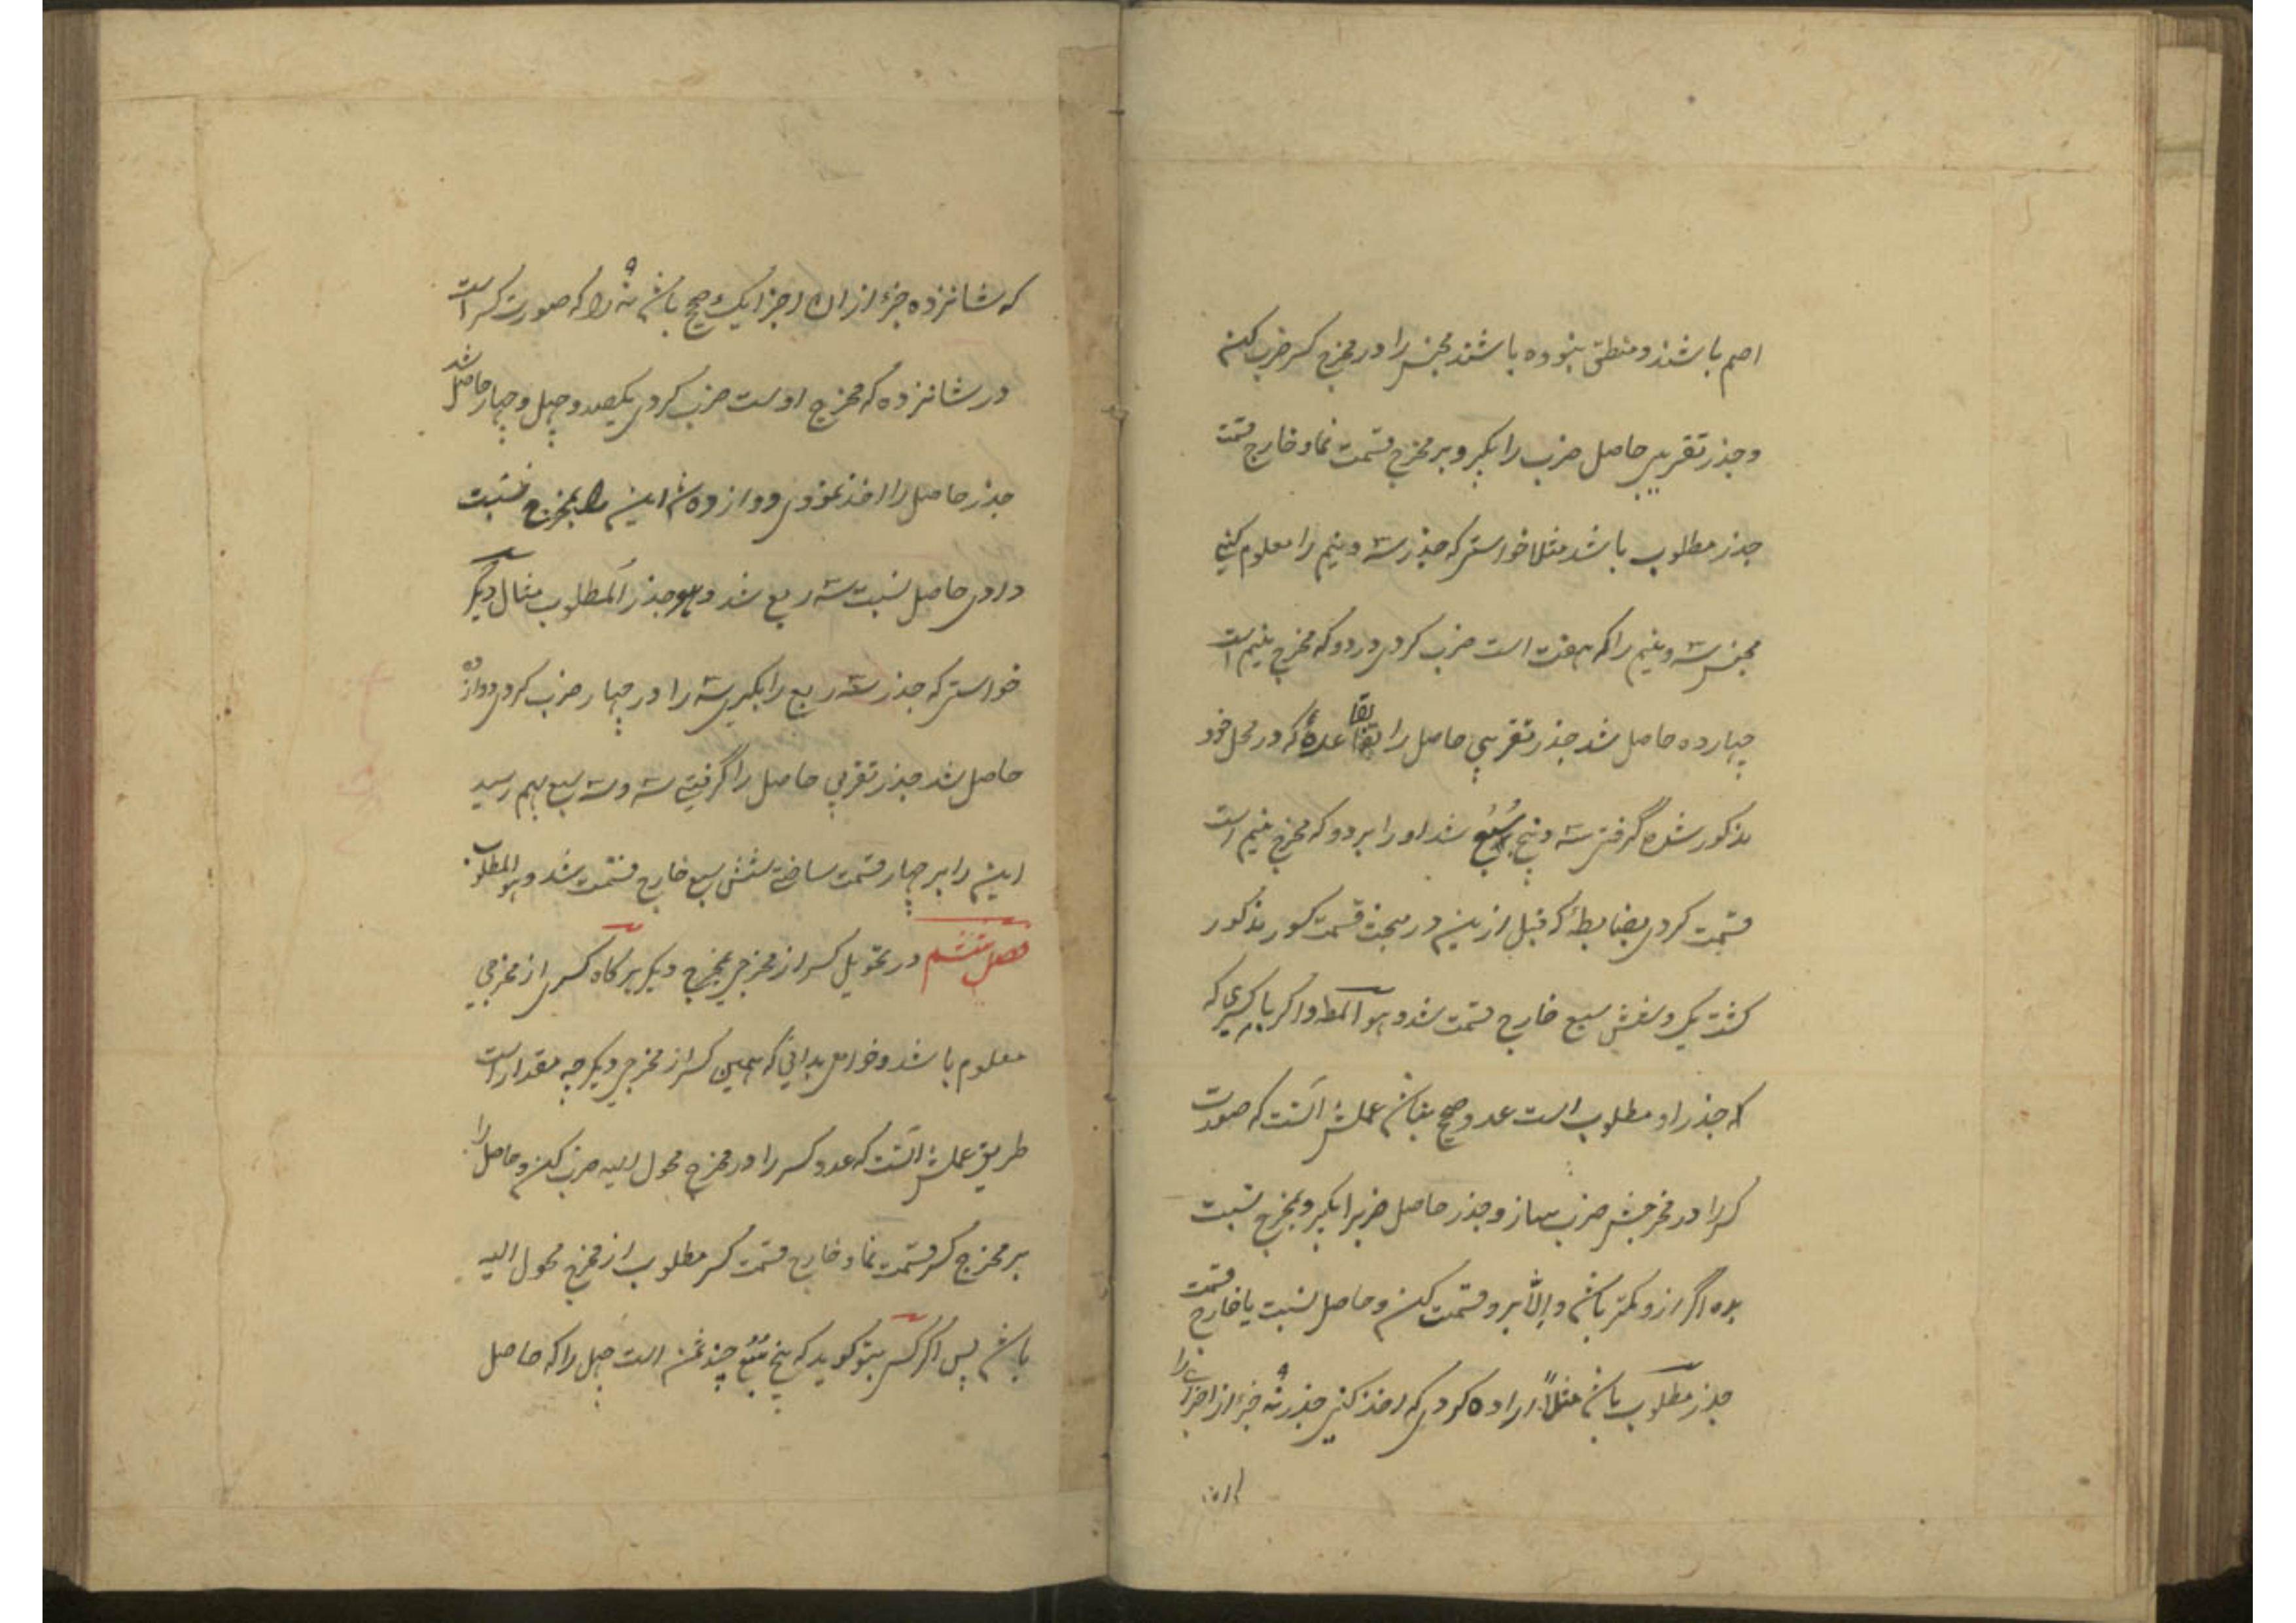 اصم باشند و منطق نبوده باشند مجنس را در مخرج کسر ضرب کن
و جذر تقریبی حاصل ضرب را بگیر و بر مخرج قسمت نما و خارج قسمت
جذر مطلوب باشد مثلا خواستی که جذر سه و نیم را معلوم کنی
مجنس سه و نیم را که هفت است ضرب کردی در دو که مخرج نیم است
چهارده حاصل شد جذر تقریبی حاصل را بقاعدهٔ که در محل خود
مذکور شده گرفتی سه و پنج سُبُع شد او را بر دو که مخرج نیم است
قسمت کردی بضابطهٔ که قبل ازین در مبحث قسمت کسور مذکور
گشت یک و شش سبع خارج قسمت شد و هو المط و اگر با کسری که
که جذر او مطلوب است عدد صحیح نباشد عملش آنست که صورت
کسر را در مخرجش ضرب ساز و جذر حاصل ضرب را بگیر و بمخرج نسبت
بده اگر ازو کمتر باشد و الّا برو قسمت کن و حاصل نسبت یا خارج قسمت
جذر مطلوب باشد مثلاً اراده کردی که اخذ کنی جذر نه جزء از اجزای را
که شانزده جزء از ان اجزا یک صحیح باشد نه را که صورت کسر است
در شانزده که مخرج اوست ضرب کردی یکصد و چهل و چهار حاصل شد
جذر حاصل را اخذ نمودی دوازده شد این را بمخرج نسبت
دادی حاصل نسبت سه ربع شد و هو جذر المطلوب مثال دیگر
خواستی که جذر سه ربع را بگیری سه را در چهار ضرب کردی دوازده
حاصل شد جذر تقریبی حاصل را گرفتی سه و سه سبع بهم رسید
این را بر چهار قسمت ساختی شش سبع خارج قسمت شد و هو المطلوب
فصل ششم در تحویل کسر از مخرجی بمخرج دیگر هر گاه کسری از مخرجی
معلوم باشد و خواهی بدانی که همین کسر از مخرجی دیگر چه مقدار است
طریق عملش آنست که عدد کسر را در مخرج محول الیه ضرب کن و حاصل را
بر مخرج کسر قسمت نما و خارج قسمت کسر مطلوب از مخرج محول الیه
باشد پس اگر کسی بتو گوید که پنج سُبُع چند ثمن است چهل را که حاصل